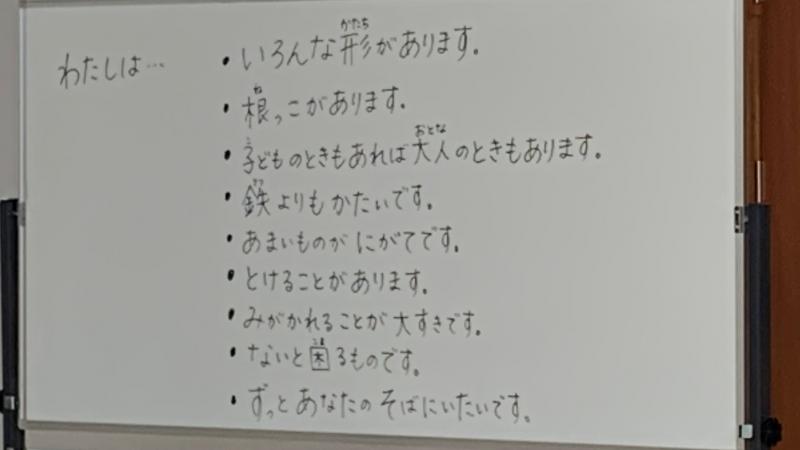 わたしは…
・いろんな形(かたち)があります。
・根(ね)っこがあります。
・子(こ)どものときもあれば大人(おとな)のときもあります。
・鉄(てつ)よりもかたいです。
・あまいものがにがてです。
・とけることがあります。
・みがかれることが大すきです。
・ないと困(こま)るものです。
・ずっとあなたのそばにいたいです。